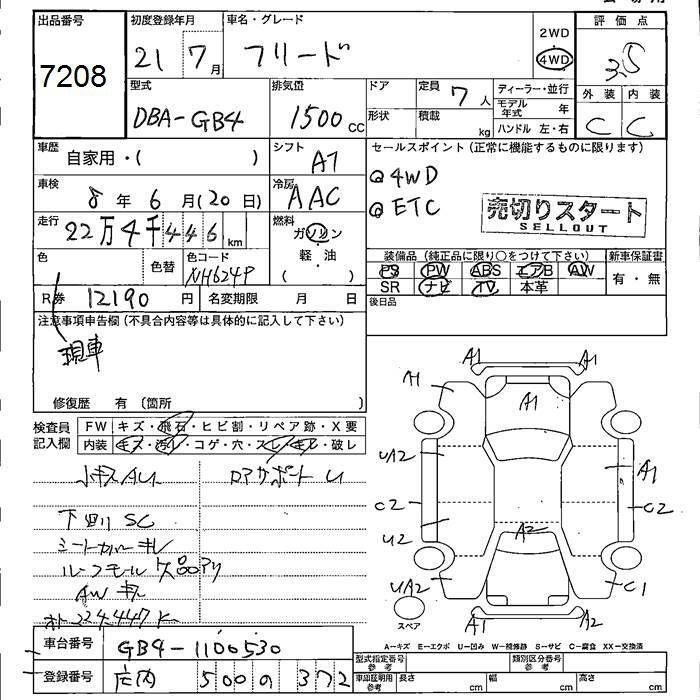 出品番号 初度登録年月 車名・グレード 評価点
7208 21 7月 フリード 2WD 4WD 3.5
外装 内装
C C
型式 排気量 ドア 定員 7人 ディーラー・並行
DBA-GB4 1500 CC 形状 積載 kg モデル年式 年
ハンドル 左・右
車歴 自家用・( ) シフト AT
セールスポイント(正常に機能するものに限ります)
車検 8年 6月(20日) 冷房 AAC
4WD
ETC
売切りスタート
SELLOUT
走行 22万4千446km 燃料 ガソリン 軽・油 ( )
色 色替 色コード NH624P
装備品(純正品に限り○をつけて下さい) 新車保証書
PS PW ABS エアB AW 有・無
SR ナビ TV 本革
R券 12190円 名変期限 月 日
後日品
注意事項申告欄(不具合内容等は具体的に記入して下さい)
現車
修復歴 有(箇所
検査員記入欄 FW キズ・飛石・ヒビ割・リペア跡・X要
内装 キズ・汚レ・コゲ・穴・スレ・キレ・破レ
小キズAU ロアサポートU
下回りSC
シートカバーキレ
ルーフモール欠品アリ
AWキズ
オド224,447K
A1 A1
A1 A1
UA2 A1
C2 C2
U2 A2
UA2 C1
A1 A2
スペア
A-キズ E-エクボ U-凹み W-補修跡 S-サビ C-腐食 XX-交換済
車台番号 GB4-1100530
型式指定番号 参考 類別区分番号 参考
登録番号 庄内 500 の 372
車庫証明用参考 長さ cm 幅 cm 高さ cm